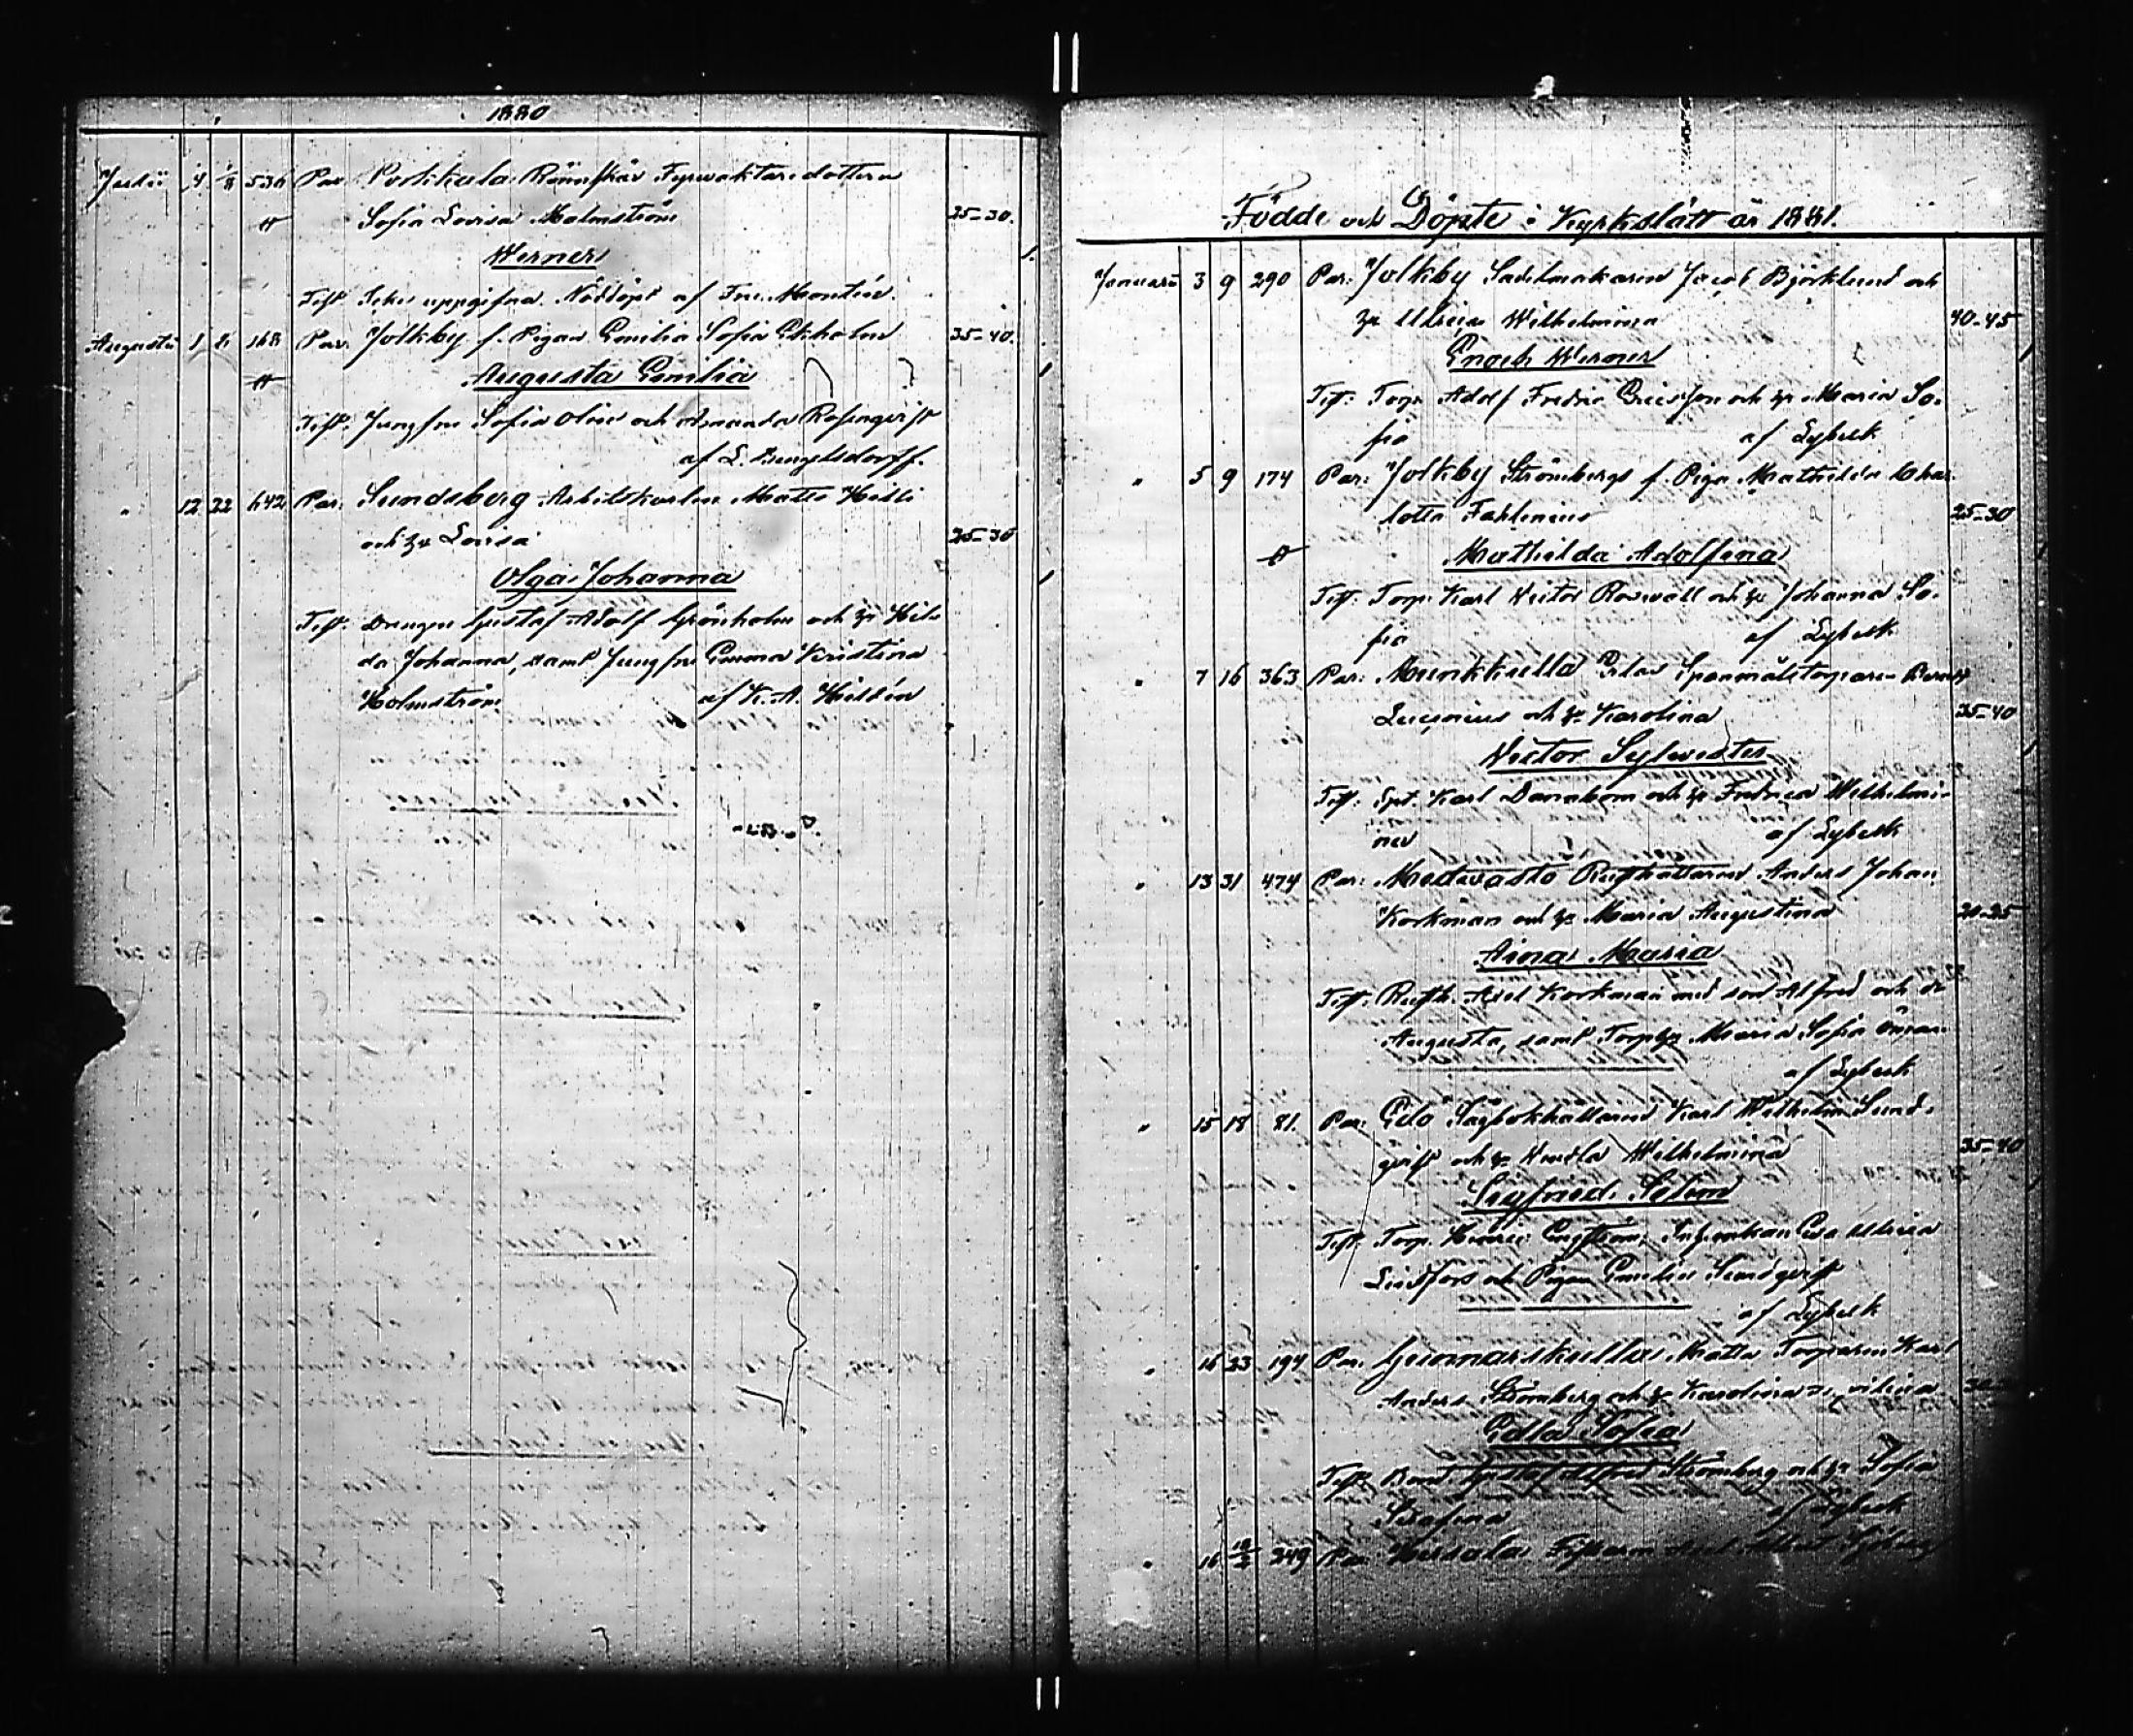 1880
Julii 4 1/8 536 Par. Porkkala Rönnskär Fyrvaktaredottern
Sofia Lovisa Malmström 25-30.
Werner
Test. Icke uppgifna. Nöddöpt af Fru Montin.
Augusti 1 8. 168 Par. Jolkby f. Pigan Emilia Sofia Ekholm 35-40.
Augusta Emilia
Test. Jungfru Sofia Olin och Amanda Rosenqvist
af L. Bengelsdorff.
" 12 22 642 Par. Sundsberg Arbetskarlen Matts
och h:u Lovisa 25-30
Olga Johanna
Test. Drengen Gustaf Adolf Grönholm och h:u Hil
da Johanna, samt Jungfru Emma Kristina
Holmström af K. A. Hildén
Födde och Döpte i Kyrkslätt år 1881.
Januari 3 9 290 Par: Jolkby Sadelmakaren Jacob Björklund och
h:u Ulrica Wilhelmina 40-45
Enoch Werner
Test: Torp. Adolf Fredric Ericsson och h:u Maria So-
fia af Lybeck
" 5 9 174 Par: Jolkby Strömbergs f. Piga Mathilda Char-
lotta Fahlenius 25-30
Mathilda Adolfina
Test: Torp. Karl Victor Roswall och h:u Johanna So-
fia af Lybeck
" 7 16 363 Par: Munkkulla Spanmålstorparen
och h:u Karolina 35-40
Victor Sylvester
Test: Karl Danabom och h:u Fredrica Wilhelmi-
na af Lybeck
" 13 31 474 Par: Medvastö Rusthållaren Anders Johan
Korkman och h:u Maria Augustina 20-25
Aina Maria
Test: Rusth. Axel Korkman med son Alfred och d:r
Augusta, samt Torp.h:u Maria Sofia Öman
af Lybeck
" 15 18 81. Par: Esbo Sågbokhållaren Karl Wilhelm Sund-
qvist och h:u Hulda Wilhelmina 35-40
Sigfried Selim
Test: Torp. Henric Engström, Eva Ulrica
Lindfors och Pigan Emilia Sundqvist
af Lybeck
" 16 23 194 Par. Gunnarskulla Matts Torparen Karl
Anders Strömberg och h:u Karolina
Edla Sofia
Test: Bond. Gustaf Alfred Strömberg och h:u Sofia
Serafina af Lybeck
" 16 10/2 249 Par.